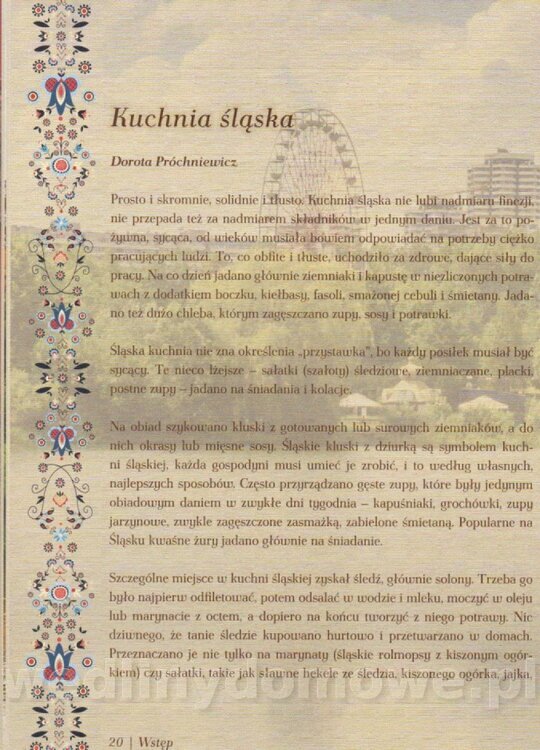 Kuchnia śląska
Dorota Próchniewicz
Prosto i skromnie, solidnie i tłusto. Kuchnia śląska nie lubi nadmiaru finezji,
nie przepada też za nadmiarem składników w jednym daniu. Jest za to po-
żywna, sycąca, od wieków musiała bowiem odpowiadać na potrzeby ciężko
pracujących ludzi. To, co obfite i tłuste, uchodziło za zdrowe, dające siły do
pracy. Na co dzień jadano głównie ziemniaki i kapustę w niezliczonych potra-
wach z dodatkiem boczku, kiełbasy, fasoli, smażonej cebuli i śmietany. Jada-
no też dużo chleba, którym zagęszczano zupy, sosy i potrawki.
Śląska kuchnia nie zna określenia „przystawka", bo każdy posiłek musiał być
sycący. Te nieco lżejsze – sałatki (szałoty) śledziowe, ziemniaczane, placki,
postne zupy – jadano na śniadania i kolacje.
Na obiad szykowano kluski z gotowanych lub surowych ziemniaków, a do
nich okrasy lub mięsne sosy. Śląskie kluski z dziurką są symbolem kuch-
ni śląskiej, każda gospodyni musi umieć je zrobić, i to według własnych,
najlepszych sposobów. Często przyrządzano gęste zupy, które były jedynym
obiadowym daniem w zwykłe dni tygodnia – kapuśniaki, grochówki, zupy
jarzynowe, zwykle zagęszczone zasmażką, zabielone śmietaną. Popularne na
Śląsku kwaśne żury jadano głównie na śniadanie.
Szczególne miejsce w kuchni śląskiej zyskał śledź, głównie solony. Trzeba go
było najpierw odfiletować, potem odsalać w wodzie i mleku, moczyć w oleju
lub marynacie z octem, a dopiero na końcu tworzyć z niego potrawy. Nic
dziwnego, że tanie śledzie kupowano hurtowo i przetwarzano w domach.
Przeznaczano je nie tylko na marynaty (śląskie rolmopsy z kiszonym ogór-
kiem) czy sałatki, takie jak sławne hekele ze śledzia, kiszonego ogórka, jajka,
wedlinydomowe.pl
20 | Wstęp